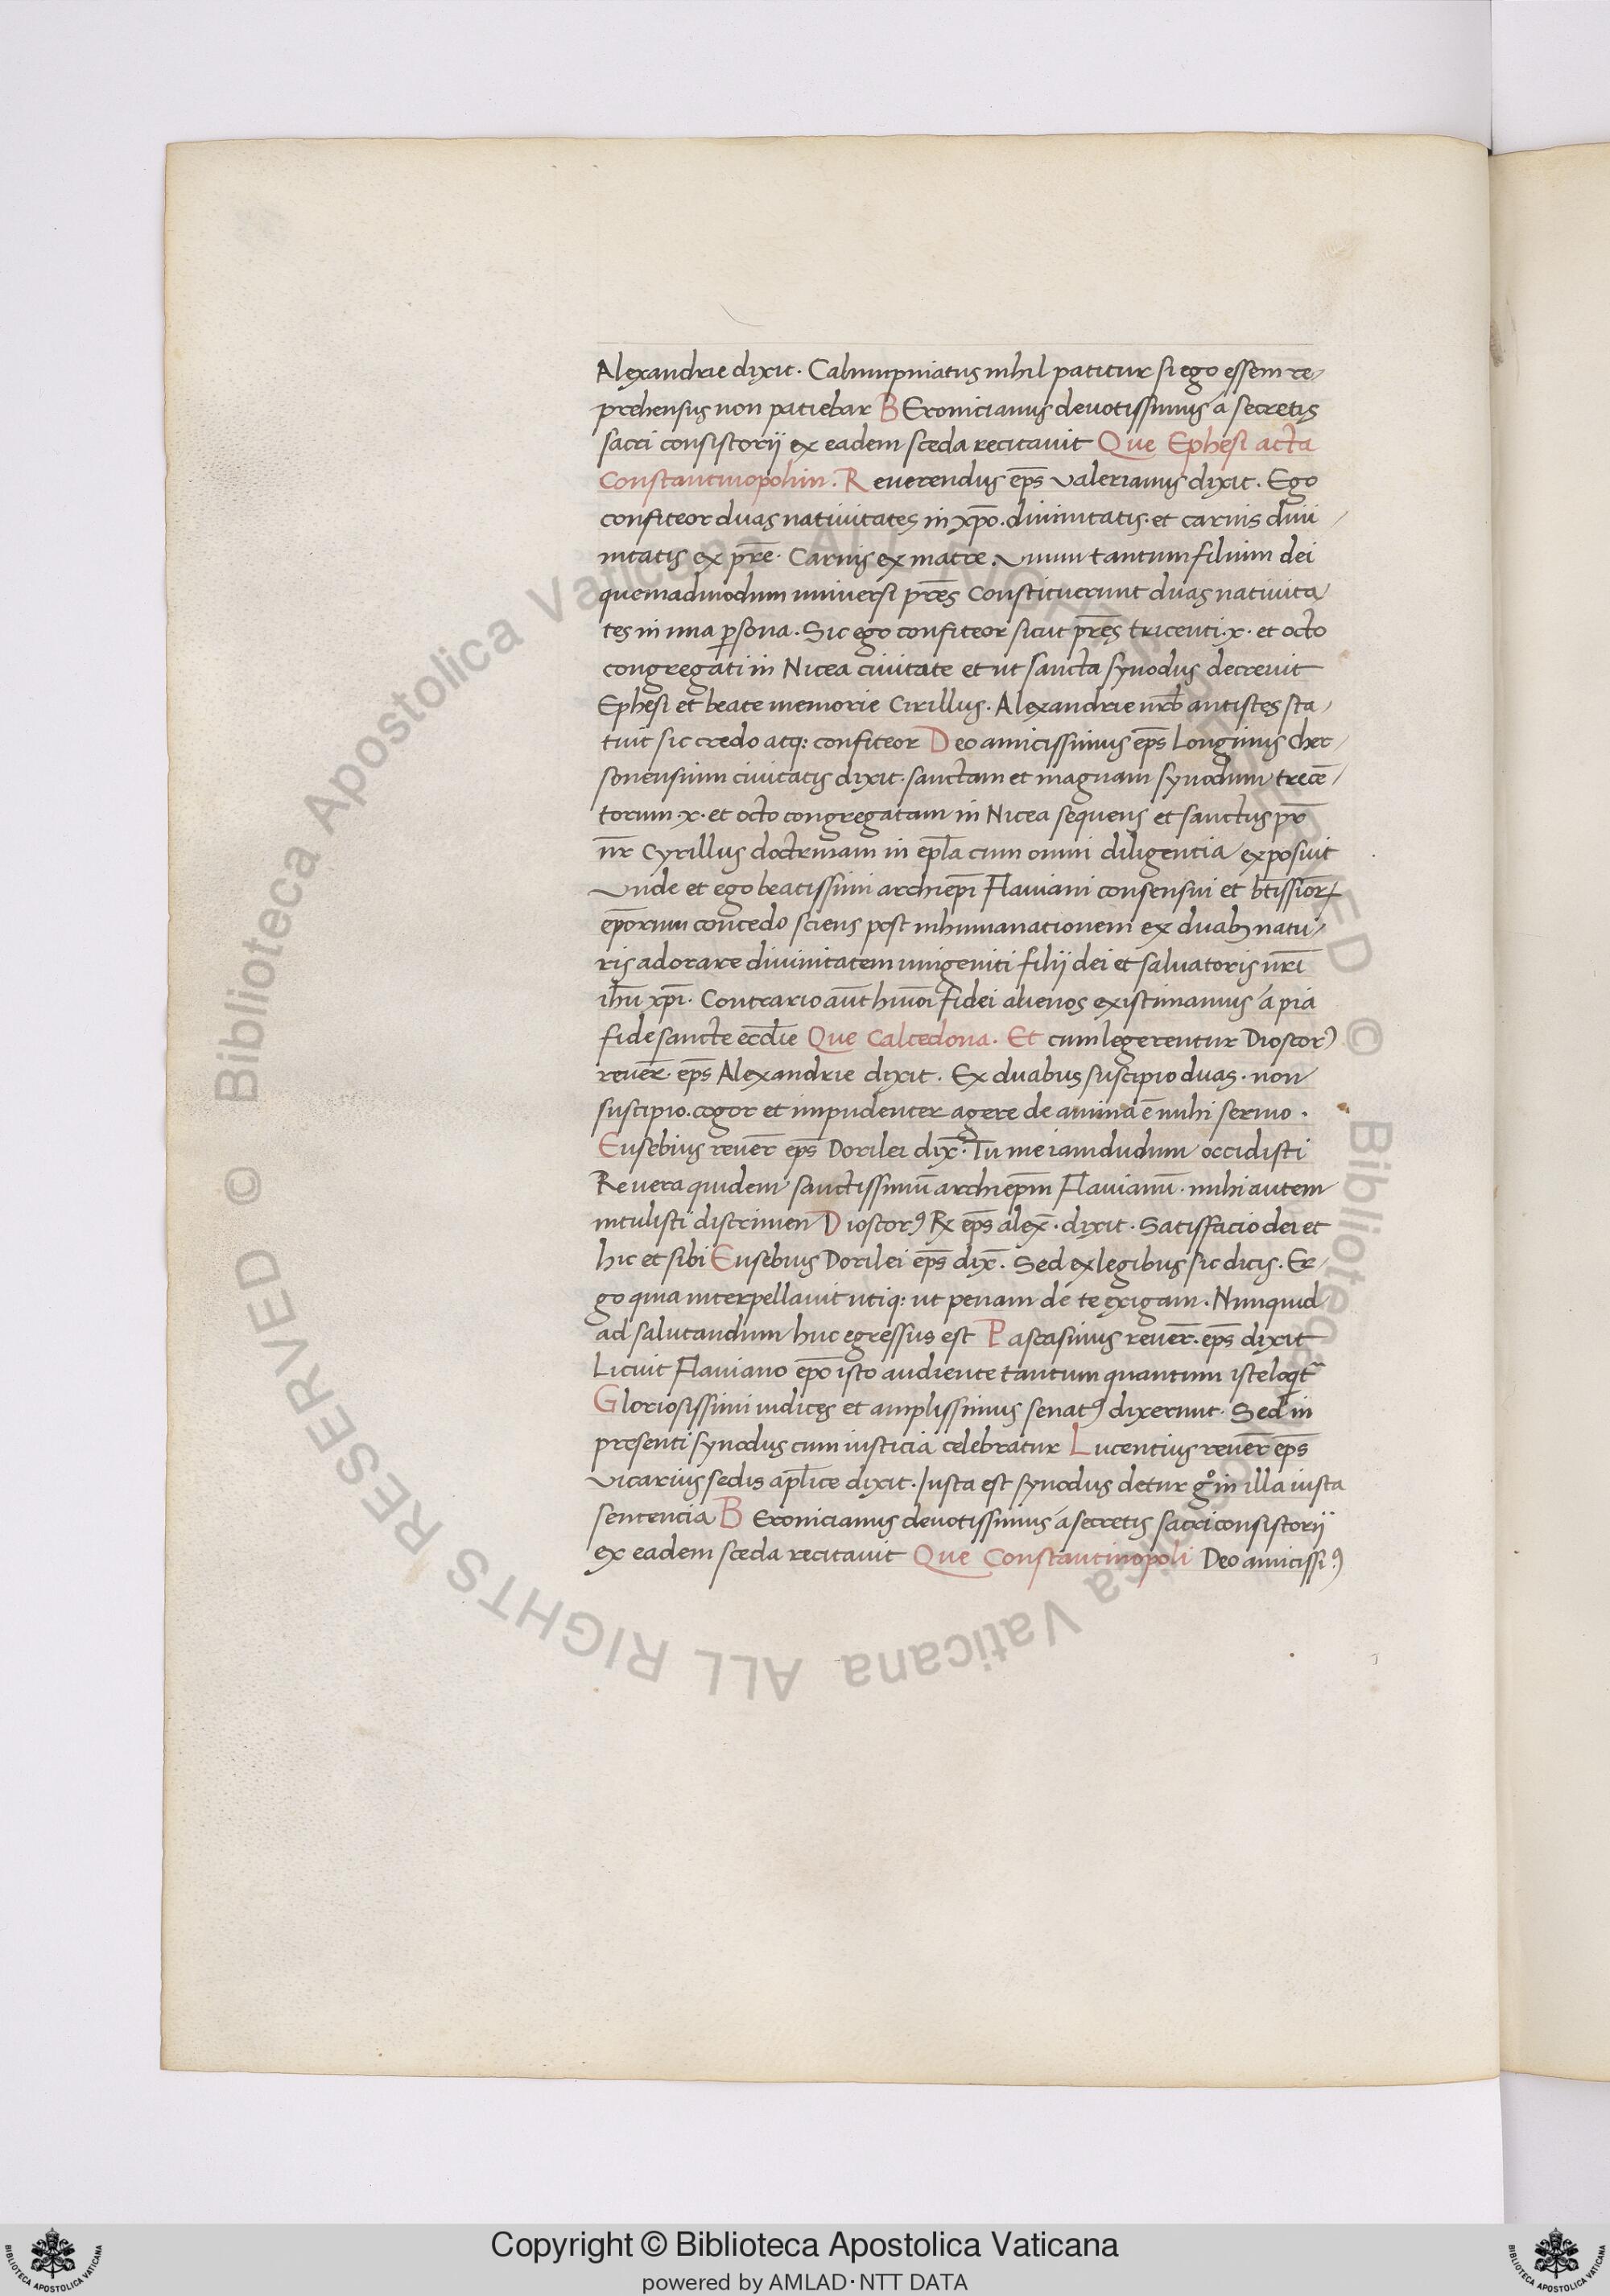 Alexandrie dixit. Calumpniatus nihil patitur si ego essem re/
prehensus non patiebar BEronicianus deuotissimus á secretis
sacri consistorij ex eadem sceda recitauit Que Ephesi acta
Constantinopolim. Reuerendus ep̄s valerianus dixit. Ego
confiteor duas natiuitates in xp̄o. diuinitatis. et carnis diui/
nitatis ex pr̄e. Carnis ex matre. Vnum tantum filium dei
quemadmodum uniuersi pr̄es Constituerunt duas natiuita/
tes in una ꝑsona. Sic ego confiteor sicut pr̄es tricenti. x. et octo
congregati in Nicea ciuitate et ut sancta synodus decreuit
Ephesi et beate memorie Cirillus. Alexandrie urb̄ antistes sta/
tuit sic credo atq: confiteor Deo amicissimus ep̄s Longinus cher/
sonensium ciuitatis dixit. sanctam et magnam synodum trecē/
torum. x. et octo congregatam in Nicea sequens et sanctus pr̄
nr̄ Cyrillus doctrinam in epl̄a cum omni diligentia exposuit
Vnde et ego beatissimi archiep̄i Flauiani consensui et bt̄issior̄ꝝ
ep̄orum concedo sciens post inhumanationem ex duabꝫ natu/
ris adorare diuinitatem unigeniti filij dei et saluatoris nr̄i
ih̄u xp̄i. Contrario aūt hm̄oi fidei alienos existimamus á pia
fide sancte eccl̄ie Que Calcedona. Et cum legerentur Dioscorꝰ
reuer̄. ep̄s Alexandrie dixit. Ex duabus suscipio duas. non
suscipio. cogor et impudenter agere de anima ē mihi sermo.
Eusebius reuer̄ ep̄s Dorilei dix̄. Tu me iamdudum occidisti
Re uera quidem sanctissimū archiep̄m Flauianū. mihi autem
intulisti discrimen Dioscorꝰ R̄ ep̄s alex̄. dixit. Satisfacio dei et
hic et sibi Eusebius Dorilei ep̄s dix̄. Sed ex legibus sic dicis. Er/
go quia interpellauit utiq: ut penam de te exigam. Nunquid
ad salutandum huc egressus est Pascasinus reuer̄. ep̄s dixit
Licuit Flauiano ep̄o isto audiente tantum quantum iste loqt᷑
Gloriosissimi iudices et amplissimus senatꝰ dixerunt. Sed in
presenti synodus cum iusticia celebratur Lucentius reuer̄ ep̄s
Vicarius sedis apl̄ice dixit. Iusta est synodus detur gͦ in illa iusta
sentencia BEronicianus deuotissimus á secretis sacri consistorij
ex eadem sceda recitauit Que Constantinopoli Deo amicissiꝰ
© Biblioteca Apostolica Vaticana ALL RIGHTS RESERVED © Biblioteca Apostolica Vaticana ALL RIGHTS RESERVED
Copyright © Biblioteca Apostolica Vaticana
powered by AMLAD·NTT DATA
BIBLIOTECA APOSTOLICA VATICANA
BIBLIOTECA APOSTOLICA VATICANA